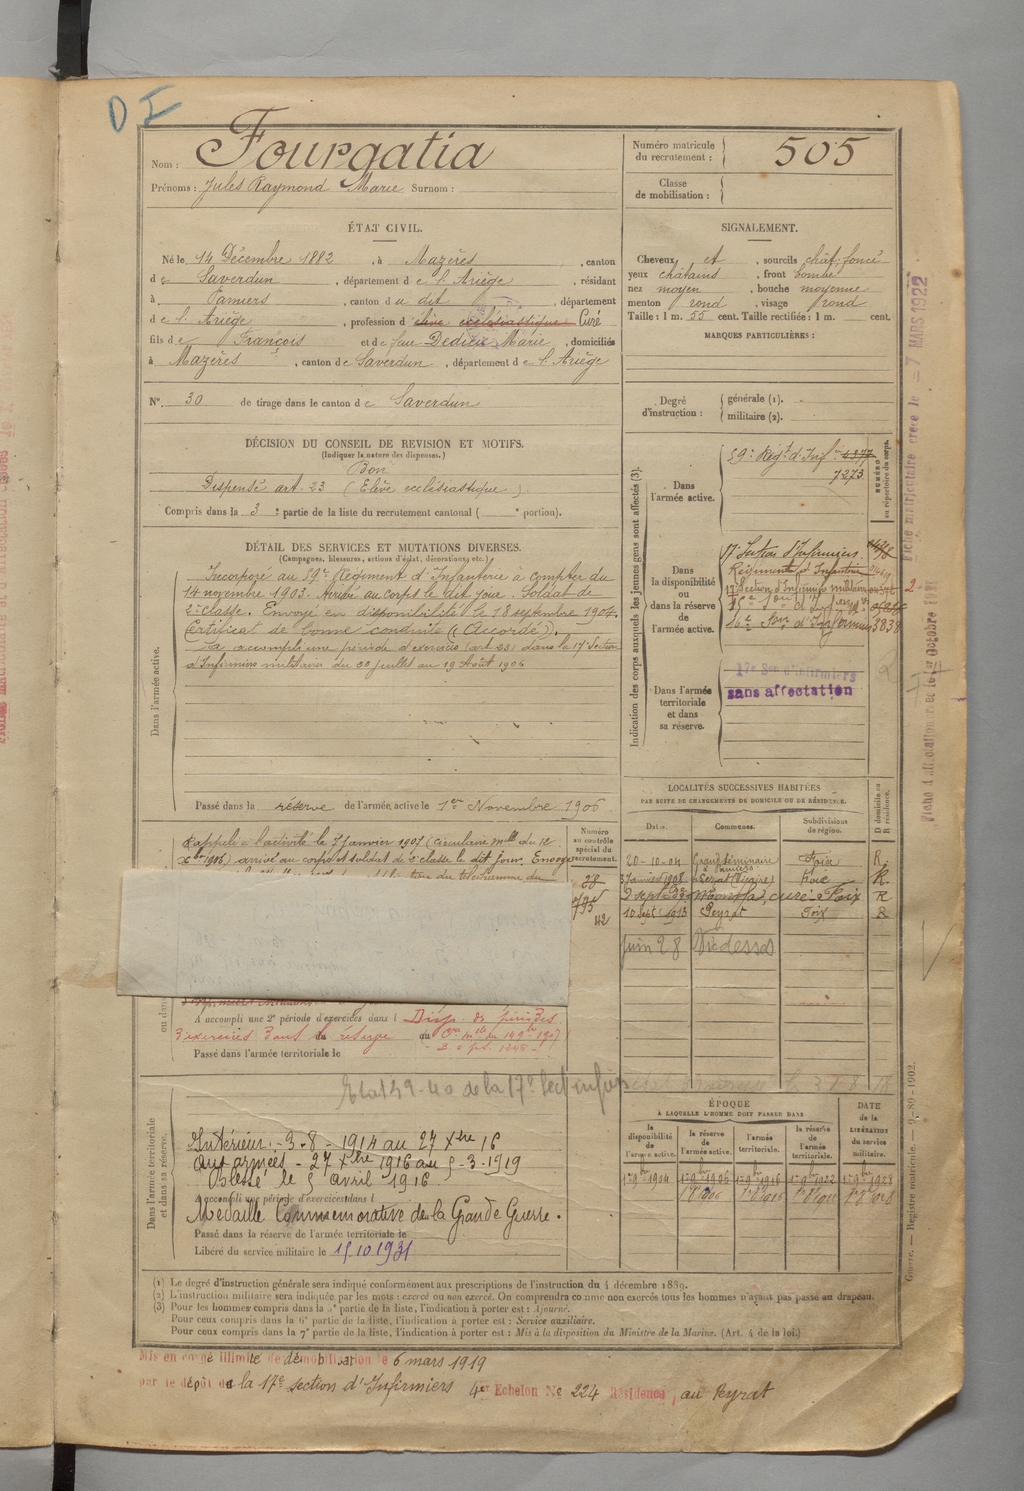 D I
Nom : Fourgatia
Prénoms : Jules Raymond Marie Surnom :
Numéro matricule du recrutement : 505
Classe de mobilisation :
ÉTAT CIVIL.
Né le 14 Décembre 1882, à Mazères, canton
de Saverdun, département de l'Ariège, résidant
à Pamiers, canton du dit, département
de l'Ariège, profession d'élève ecclésiastique Curé
fils de François et de feue Dedieu Marie, domiciliés
à Mazères, canton de Saverdun, département de l'Ariège
N° 30 de tirage dans le canton de Saverdun
SIGNALEMENT.
Cheveux et, sourcils chât. foncé
yeux châtains, front bombé
nez moyen, bouche moyenne
menton rond, visage rond
Taille : 1 m. 55 cent. Taille rectifiée : 1 m. cent.
MARQUES PARTICULIÈRES :
Degré d'instruction : générale (1).
militaire (2).
DÉCISION DU CONSEIL DE REVISION ET MOTIFS.
(Indiquer la nature des dispenses.)
Bon
Dispensé art. 23 (Elève ecclésiastique)
Compris dans la 3e partie de la liste du recrutement cantonal ( e portion).
DÉTAIL DES SERVICES ET MUTATIONS DIVERSES.
(Campagnes, blessures, actions d'éclat, décorations, etc.)
Dans l'armée active.
Incorporé au 59e Régiment d'Infanterie à compter du
14 novembre 1903. Arrivé au corps le dit jour. Soldat de
2e classe. Envoyé en disponibilité le 18 septembre 1904.
Certificat de bonne conduite (Accordé).
A accompli une période d'exercices (art 23) dans la 17e Section
d'Infirmiers militaires du 30 juillet au 19 Août 1906
Passé dans la réserve de l'armée active le 1er Novembre 1906
Indication des corps auxquels les jeunes gens sont affectés (3).
NUMÉRO au répertoire du corps.
Dans l'armée active.
59e Régt d'Infie 4377
7273
Dans la disponibilité ou dans la réserve de l'armée active.
17e Section d'Infirmiers
Régiment d'Infanterie
17 Section d'Infirmiers militaires
3838
Dans l'armée territoriale et dans sa réserve.
17e Son d'infirmiers
sans affectation
Fiche matriculaire créée le - 7 MARS 1922
LOCALITÉS SUCCESSIVES HABITÉES
PAR SUITE DE CHANGEMENTS DE DOMICILE OU DE RÉSIDENCE.
Dates. Communes. Subdivisions de région. D domicile ou R résidence.
20-10-04 Grand séminaire à Pamiers Foix R.
3 Janvier 1908 Lézat (Vicaire) Foix R.
curé Foix R
10 Septe 1913 Peyrat Foix R
Juin 28 Vicdessos
Numéro au contrôle spécial du recrutement.
28
795
42
Rappelé à l'activité le 3 Janvier 1907 (Circulaire mlle du 12
Xbre 1906) arrivé au corps et soldat de 2e classe le dit jour. Envoyé
A accompli une 2e période d'exercices dans l Disp. de périodes
d'exercices dans la réserve
Passé dans l'armée territoriale le
Etat 149-40 de la 17e Sect infirm
ÉPOQUE
À LAQUELLE L'HOMME DOIT PASSER DANS
la disponibilité de l'armée active.
la réserve de l'armée active.
l'armée territoriale.
la réserve de l'armée territoriale.
DATE de la LIBÉRATION du service militaire.
1er 9bre 1904 1er 9bre 1906 1er 9bre 1916 1er 9bre 1922 1er 9bre 1928
Dans l'armée territoriale et dans sa réserve.
Intérieur : - 3-8-1914 au 27 Xbre 16
aux armées - 27 Xbre 1916 au 5-3-1919
Blessé le 5 avril 1916
A accompli une période d'exercices dans l
Médaille Commémorative de la Grande Guerre.
Passé dans la réserve de l'armée territoriale le
Libéré du service militaire le 15.10.1931
Guerre. — Registre matricule. — 9-89-1902.
(1) Le degré d'instruction générale sera indiqué conformément aux prescriptions de l'instruction du 4 décembre 1889.
(2) L'instruction militaire sera indiquée par les mots : exercé ou non exercé. On comprendra comme non exercés tous les hommes n'ayant pas passé au drapeau.
(3) Pour les hommes compris dans la 5e partie de la liste, l'indication à porter est : Ajourné.
Pour ceux compris dans la 6e partie de la liste, l'indication à porter est : Service auxiliaire.
Pour ceux compris dans la 7e partie de la liste, l'indication à porter est : Mis à la disposition du Ministre de la Marine. (Art. 4 de la loi.)
Mis en congé illimité de démobilisation le 6 mars 1919
par le dépôt de la 17e section d'Infirmiers 4e Echelon No 224 Résidence, au Peyrat